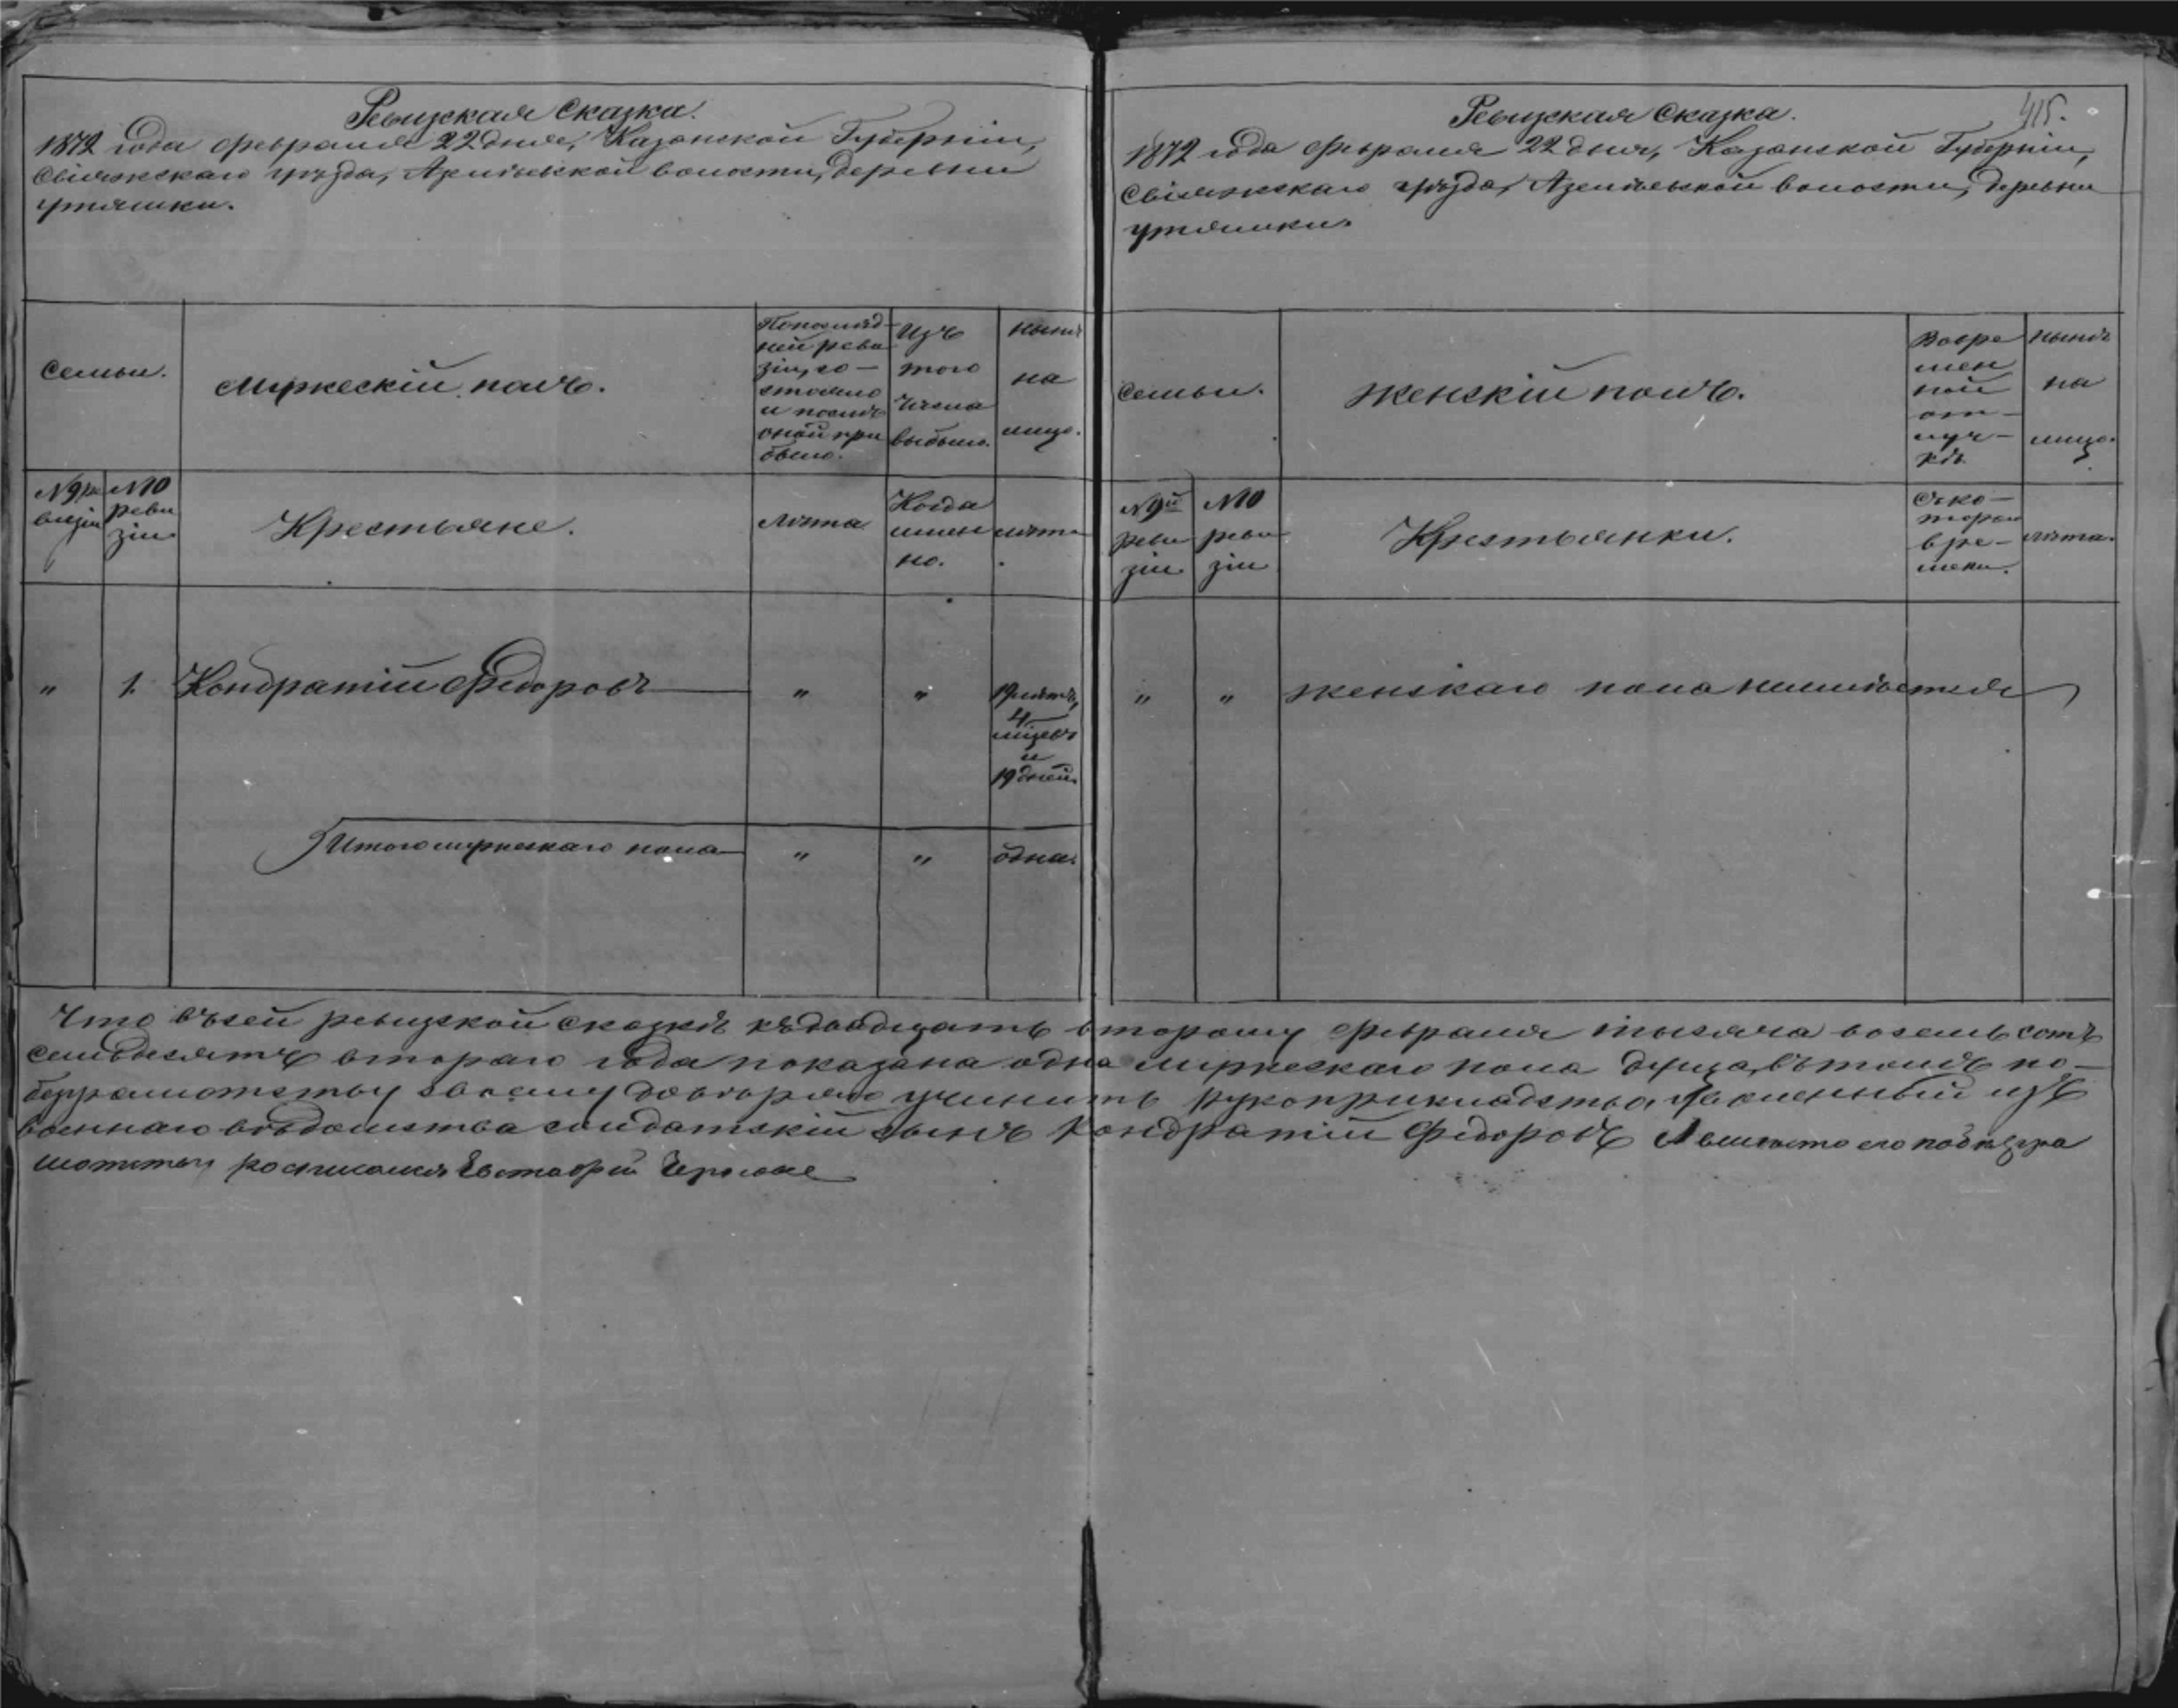 Ревизская Сказка.
1872 года февраля 22 дня, Казанской Губерніи,
Свіяжскаго уѣзда, Азелѣевской волости, деревни
утяшки.
Семьи.
мужескій полъ.
По послѣд-
ней реви
зіи, со-
стояло
и послѣ
оной при
было.
Изъ
того
числа
выбыло.
нынѣ
на
лицо.
№ 9 ре
визіи
№ 10
реви
зіи
Крестьяне.
лѣта
Когда
имен
но.
лѣта
„ 1. Кондратій Федоровъ „ „
4
мѣсѣцъ
и
19 дней.
Итого мужескаго пола „ „ одна.
Ревизская Сказка. 415.
1872 года февраля 22 дня, Казанской Губерніи,
Свіяжскаго уѣзда, Азелѣевской волости, деревни
утяшки.
Семьи.
женскій полъ.
Во вре
мен
ной
от-
луч-
кѣ
нынѣ
на
лицо.
№ 9й
реви
зіи
№ 10
реви
зіи
Крестьянки.
Съ ко-
тораго
вре-
мени.
лѣта.
„ „ женскаго пола неимѣется
Что въ сей ревизской сказкѣ къ двадцать второму февраля тысяча восемь сотъ
семьдесятъ втораго года показана одна мужескаго пола душа, въ томъ по-
безграмотству своему довѣряю учинить рукоприкладство, изъ
военнаго вѣдомства солдатскій сынъ Кондратій Федоровъ А вмѣсто его по безгра
мотству росписался